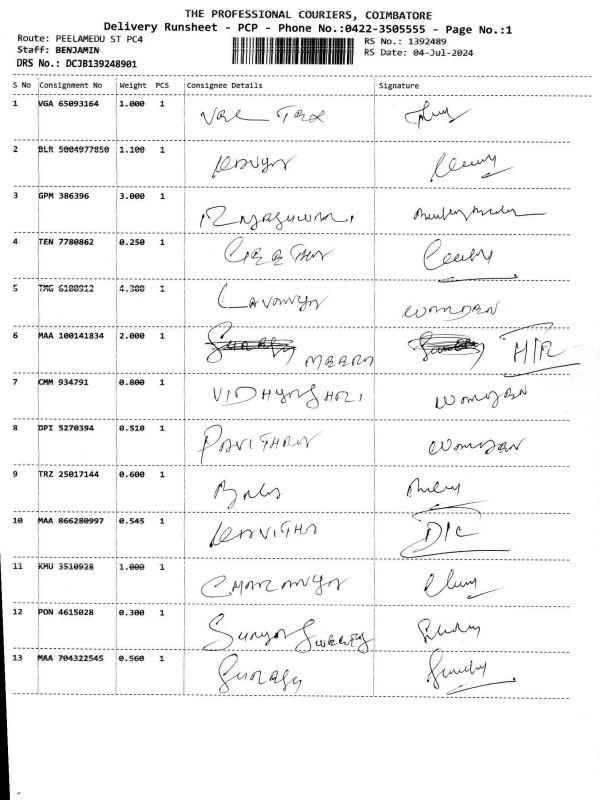 THE PROFESSIONAL COURIERS, COIMBATORE
Delivery Runsheet - PCP - Phone No.:0422-3505555 - Page No.:1
Route: PEELAMEDU ST PC4 RS No.: 1392489
Staff: BENJAMIN RS Date: 04-Jul-2024
DRS No.: DCJB139248901
S No Consignment No Weight PCS Consignee Details Signature
1 VGA 65093164 1.000 1
2 BLR 5004977850 1.100 1 Kavya
3 GPM 386396 3.000 1 Rajaguwari
4 TEN 7780862 0.250 1 GEETHA
5 TMG 6100912 4.300 1 Lavanya WOMDEN
6 MAA 100141834 2.000 1 MEERA H/R
7 CMM 934791 0.800 1 VIDHYASHRI WOMDEN
8 DPI 5270394 0.510 1 PAVITHRA WOMDEN
9 TRZ 25017144 0.600 1 Bala
10 MAA 866280997 0.545 1 KAVITHA D/C
11 KMU 3510928 1.000 1 CHARANYA
12 PON 4615028 0.300 1 Surya Sweets
13 MAA 704322545 0.560 1